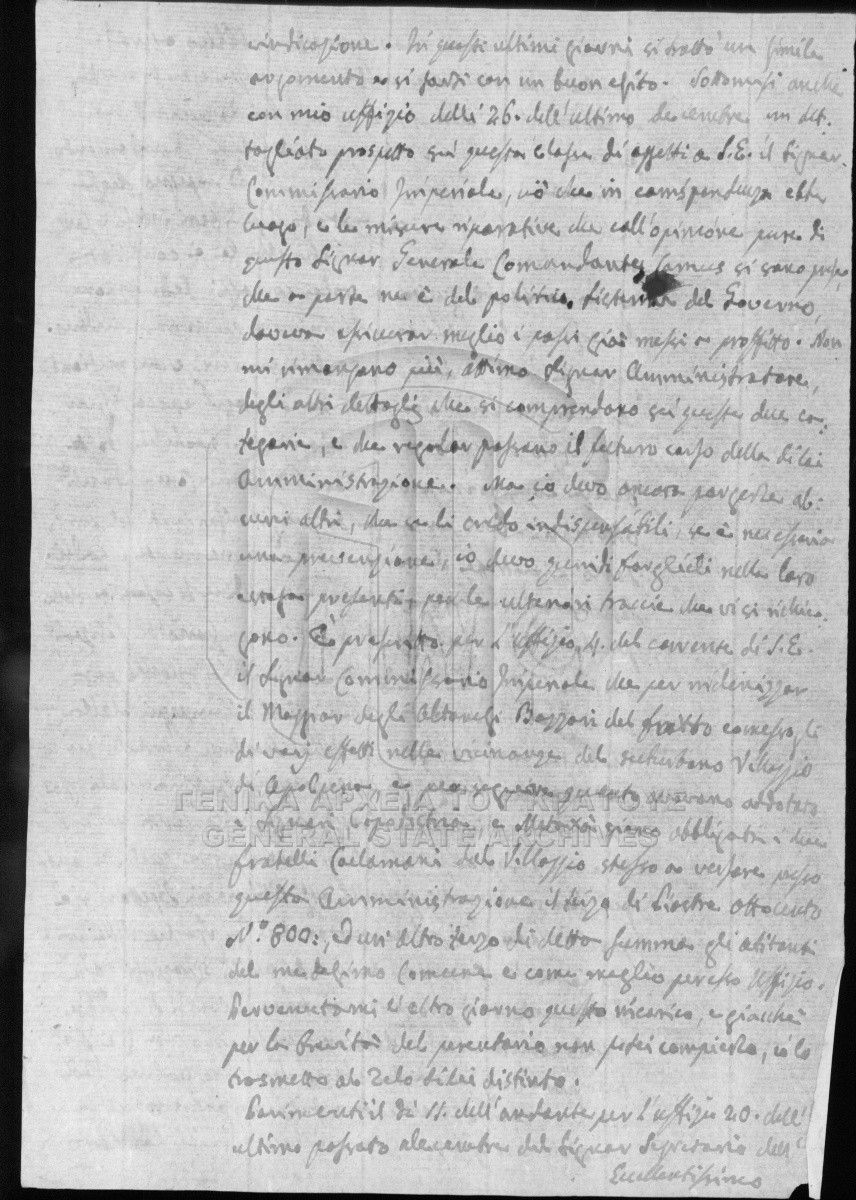 vindicazione. In questi ultimi giorni si trattò un simile
argomento e si sortì con un buon esito. Sottomisi anche
con mio uffizio delli 26. dell'ultimo decembre un det:
tagliato prospetto su questa classe di oggetti a S.E. il Signor
Commissario Imperiale, ciò che in corrispondenza ebbe
luogo, e le misure riparative che coll'opinione pure di
questo Signor Generale Comandante Camus si sono prese,
che a parte ne è del politico Sistema del Governo,
doveva assicurar meglio i passi già messi a proffitto. Non
mi rimangono più, ottimo Signor Amministratore,
degli altri dettagli che si comprendono su queste due ca:
tegorie, e che regolar possano il futuro corso della di lei
Amministrazione. Ma io devo ancora porgerle al:
cuni altri, che se li credo indispensabili, se è necessaria
una prevenzione, io devo quindi farglieli nella loro
presenti, per le ulteriori traccie che vi si richie:
gono. È prescritto per l'Uffizio 4. del corrente di S.E.
il Signor Commissario Imperiale che per indenizzar
il Maggior degli Bazzari del furto
di varj effetti nelle vicinanze del suburbano Villaggio
di Apolpena, e per seguire quanto avevano addotato
i Signori Capodistria e siano obbligati i due
fratelli Caclamani del Villaggio stesso a versare presso
questa Amministrazione il terzo di Piastre Ottocento
N.º 800:, ed un altro terzo di detta summa gli abitanti
del medesimo Comune e come meglio per esso Uffizio.
Pervenutomi l'altro giorno questo incarico, e giacchè
per la brevità del perentorio non potei compierlo, io lo
trasmetto al Zelo di lei distinto.
Parimenti il dì 11. dell'andante per l'uffizio 20. dell'
ultimo passato decembre del Signor Segretario dell'
Eccellentissimo
ΓΕΝΙΚΑ ΑΡΧΕΙΑ ΤΟΥ ΚΡΑΤΟΥΣ
GENERAL STATE ARCHIVES